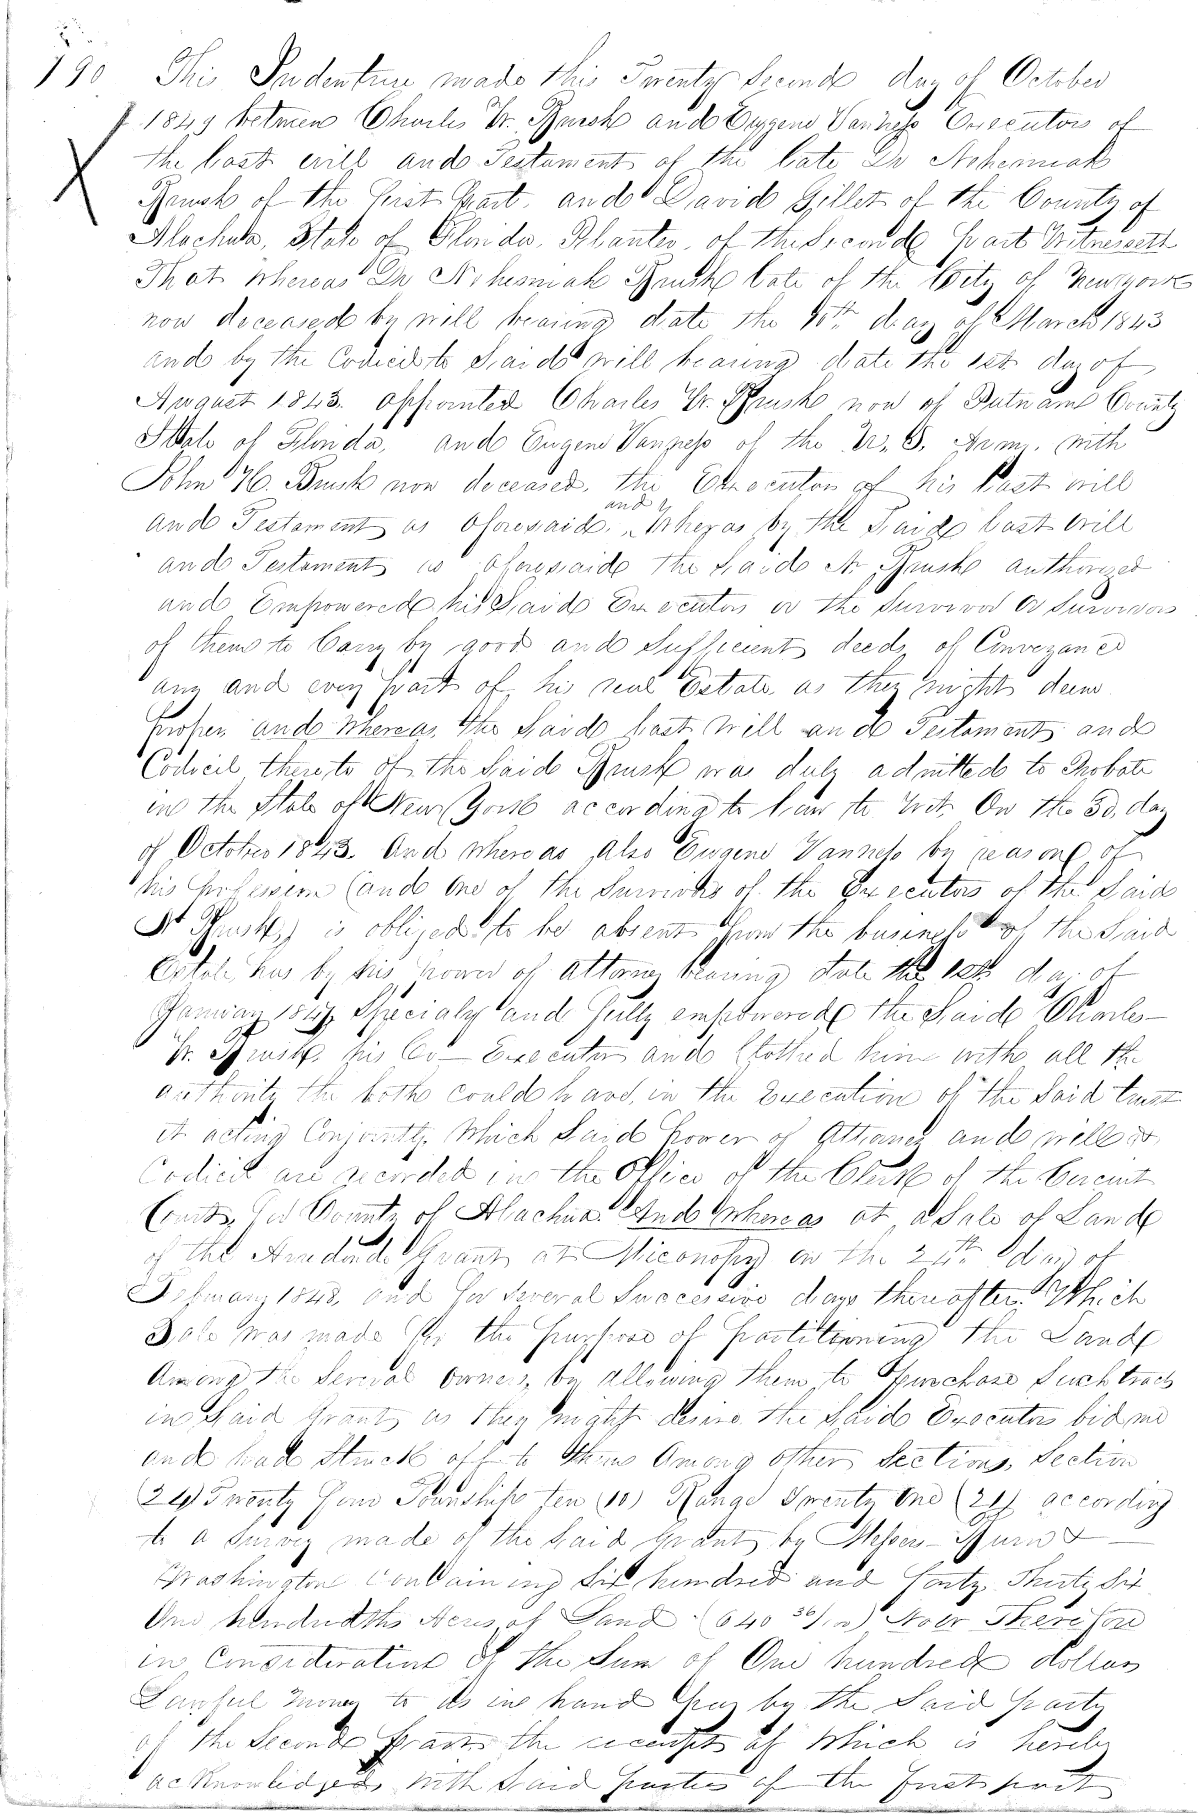 190 This Indenture made this Twenty Second day of October
1849 between Charles W. Brush and Eugene Vanness Executors of
the last will and Testament of the late Dr Nehemiah
Brush of the first part. and David Gillet of the County of
Alachua, State of Florida, Planter, of the Second part Witnesseth
That whereas Dr Nehemiah Brush late of the City of New York
now deceased by will bearing date the 10th day of March 1843
and by the Codicil to Said will bearing date the 1st day of
August 1843. appointed Charles W. Brush now of Putnam County
State of Florida, and Eugene Vanness of the U. S. Army, with
John H. Brush now deceased, the Executors of his last will
and Testament as aforesaid, and Wheras by the Said last Will
and Testament as aforesaid the Said N. Brush authorized
and Empowered his Said Executors or the Survivor or Survivors
of them to Carry by good and Sufficient deeds of Conveyance
any and every part of his real Estate as they might deem
proper. and whereas, the Said last Will and Testament and
Codicil thereto of the Said Brush was duly admitted to Probate
in the State of New York according to law to wit. On the 3d, day
of October 1843. And whereas also Eugene Vanness by reason of
his profession (and one of the Survivors of the Executors of the Said
N Brush,) is obliged to be absent from the business of the Said
Estate, has by his power of Attorney bearing date the 1st day of
January Specialy and fully empowered the Said Charles
W. Brush, his Co- Executor and Clothed him with all the
authority the both could have, in the Execution of the Said trust
acting Conjointly. Which Said power of Attorney and will &
Codicil are recorded in the Office of the Clerk of the Circuit
Court, for County of Alachua. And whereas at a Sale of Land
of the Arredondo Grant at Miconopy on the 24th day of
February 1848, and for several Successive days thereafter. Which
Sale was made for the purpose of partitioning the Land
Among the Several owners, by allowing them to purchase Such tracts
in Said Grant, as they might desire the Said Executors bid
and had Struck off to them Among other Sections, Section
(24) Twenty four Township ten (10) Range Twenty One (21) according
to a Survey made of the Said Grant by Messers Burr &
Washington containing Six hundred and forty, Thirty Six
One hundredths Acres of Land (640 36/100) Now Therefore
in Consideration of the Sum of One hundred dollars
Lawful money to us in hand pay by the Said party
of the Second part the receipt of Which is hereby
acknowledged, with Said parties of the first part